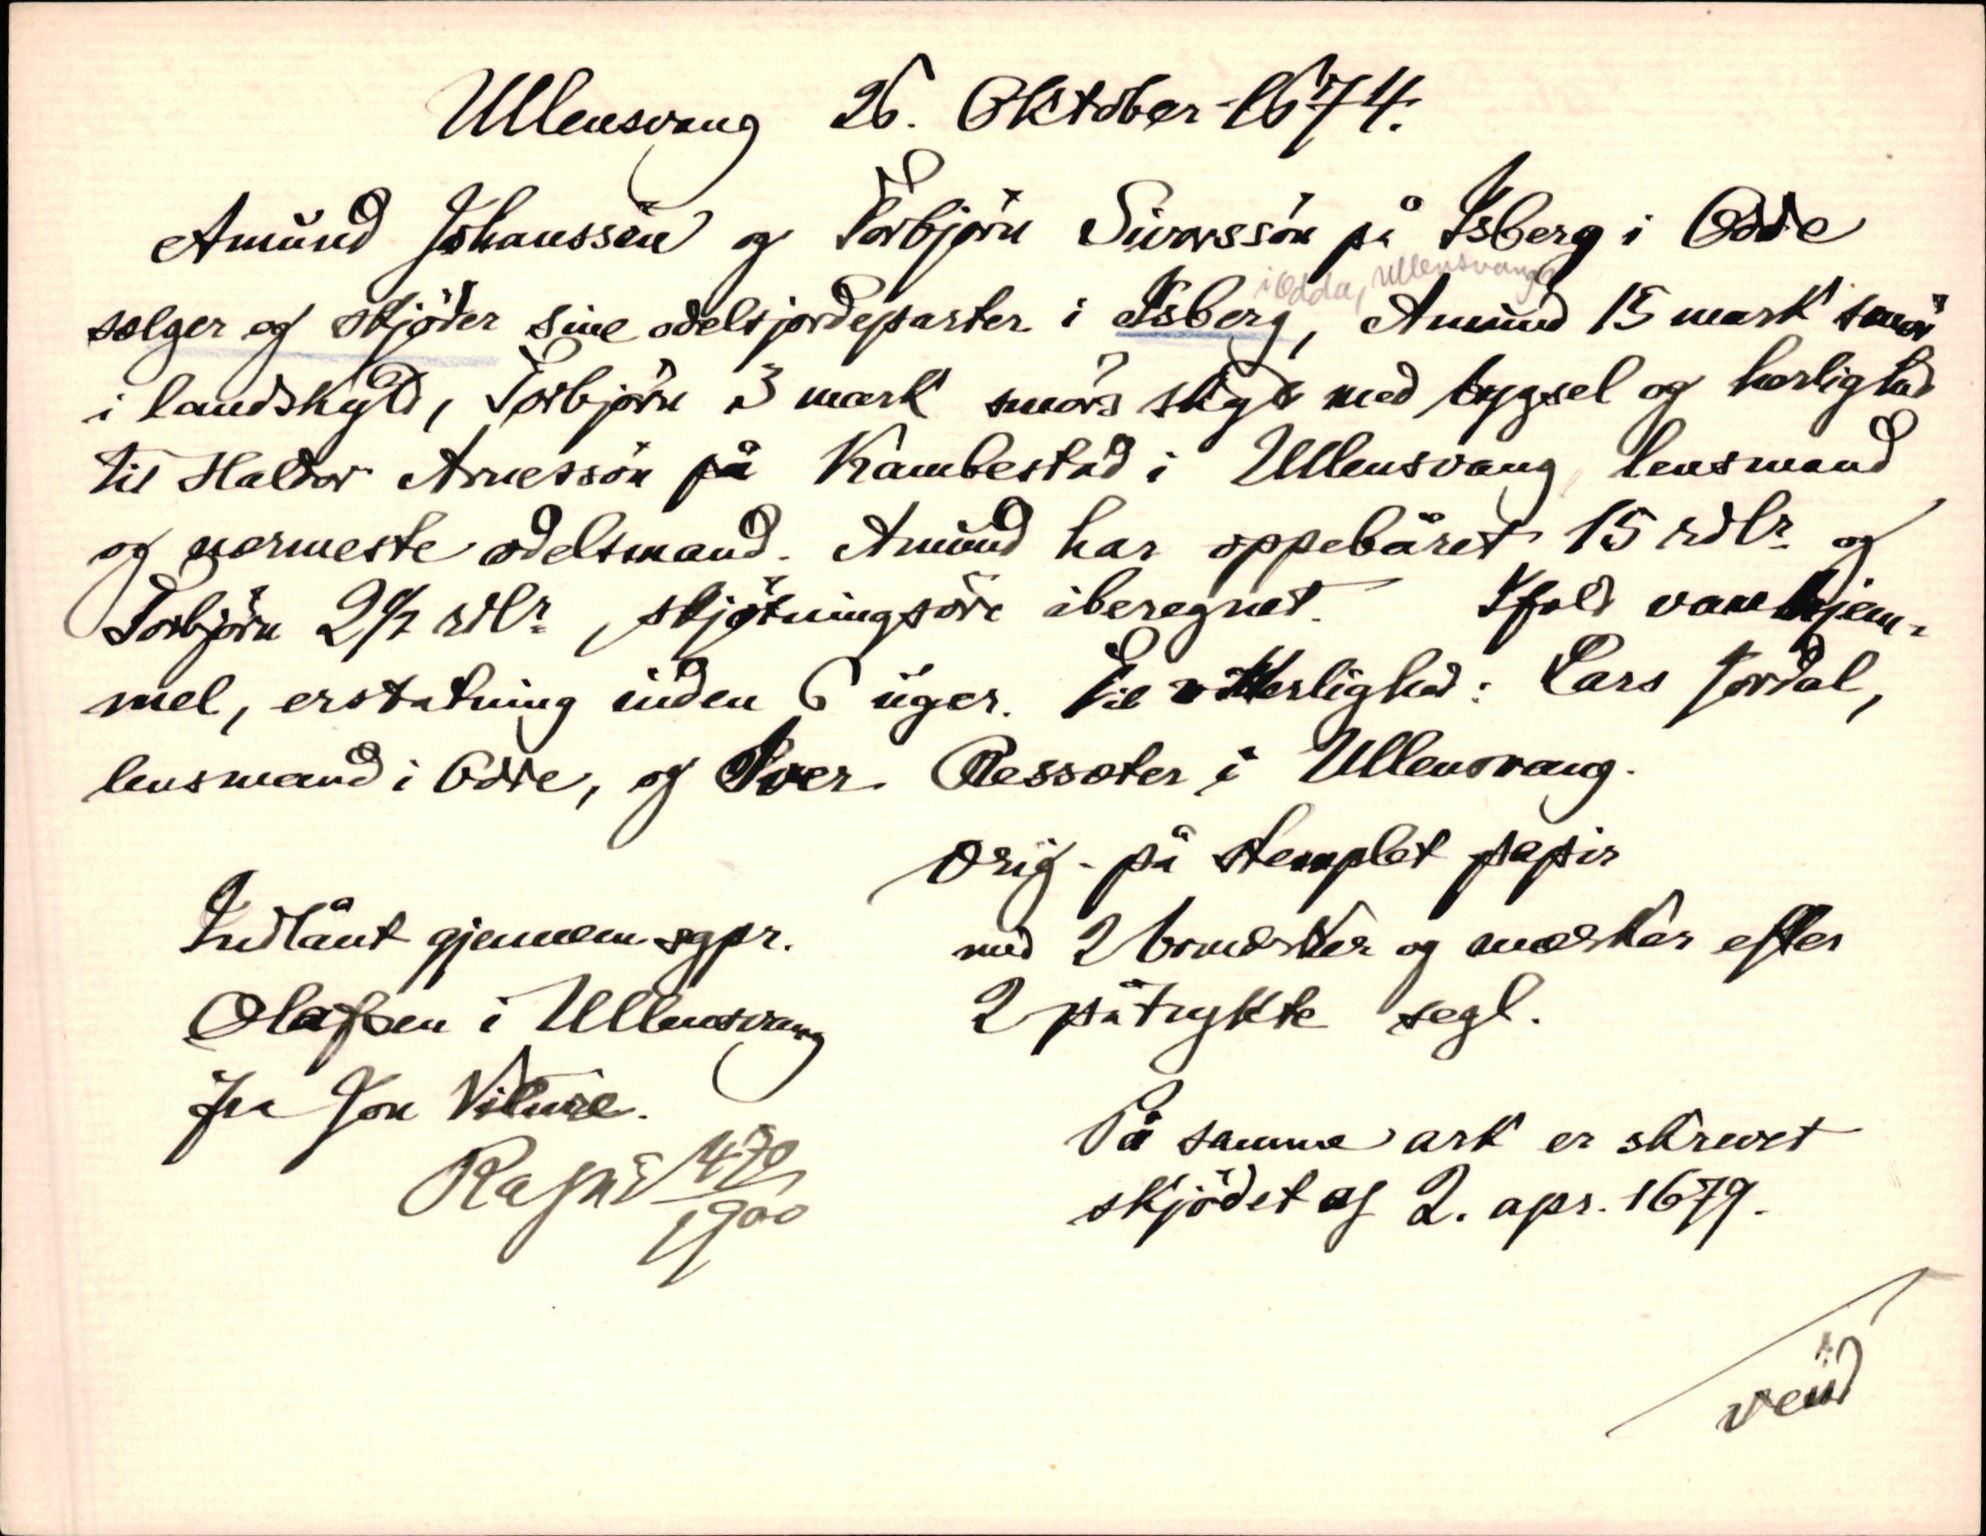 Ullensvang 26. Oktober 1674.
Amund Johanssön og Torbjörn Sivorssön på Isberg i Odde
i Odda, Ullensvang
sælger og skjöder sine odelsjordeparter i Isberg, Amund 15 mark smör
i landskyld, Torbjörn 3 mark smörs skyld med bygsel og herlighed
til Haldor Arnessön på Kambestad i Ullensvang, lensmand
og nærmeste odelsmand. Amund har oppebåret 15 rdlr. og
Torbjörn 2 1/2 rdlr., skjötningsöre iberegnet. Ifald vanhjem-
mel, erstatning inden 6 uger. Til vitterlighed: Lars Jordal,
lensmand i Odde, og Iver Ressæter i Ullensvang.
Orig. på stemplet papir
med 2 bomærker og mærker efter
2 påtrykte segl.
Indlånt gjennem sgpr.
Olafsen i Ullensvang
fra Jon Vilure.
1900
På samme ark er skrevet
skjödet af 2. apr. 1679.
vend